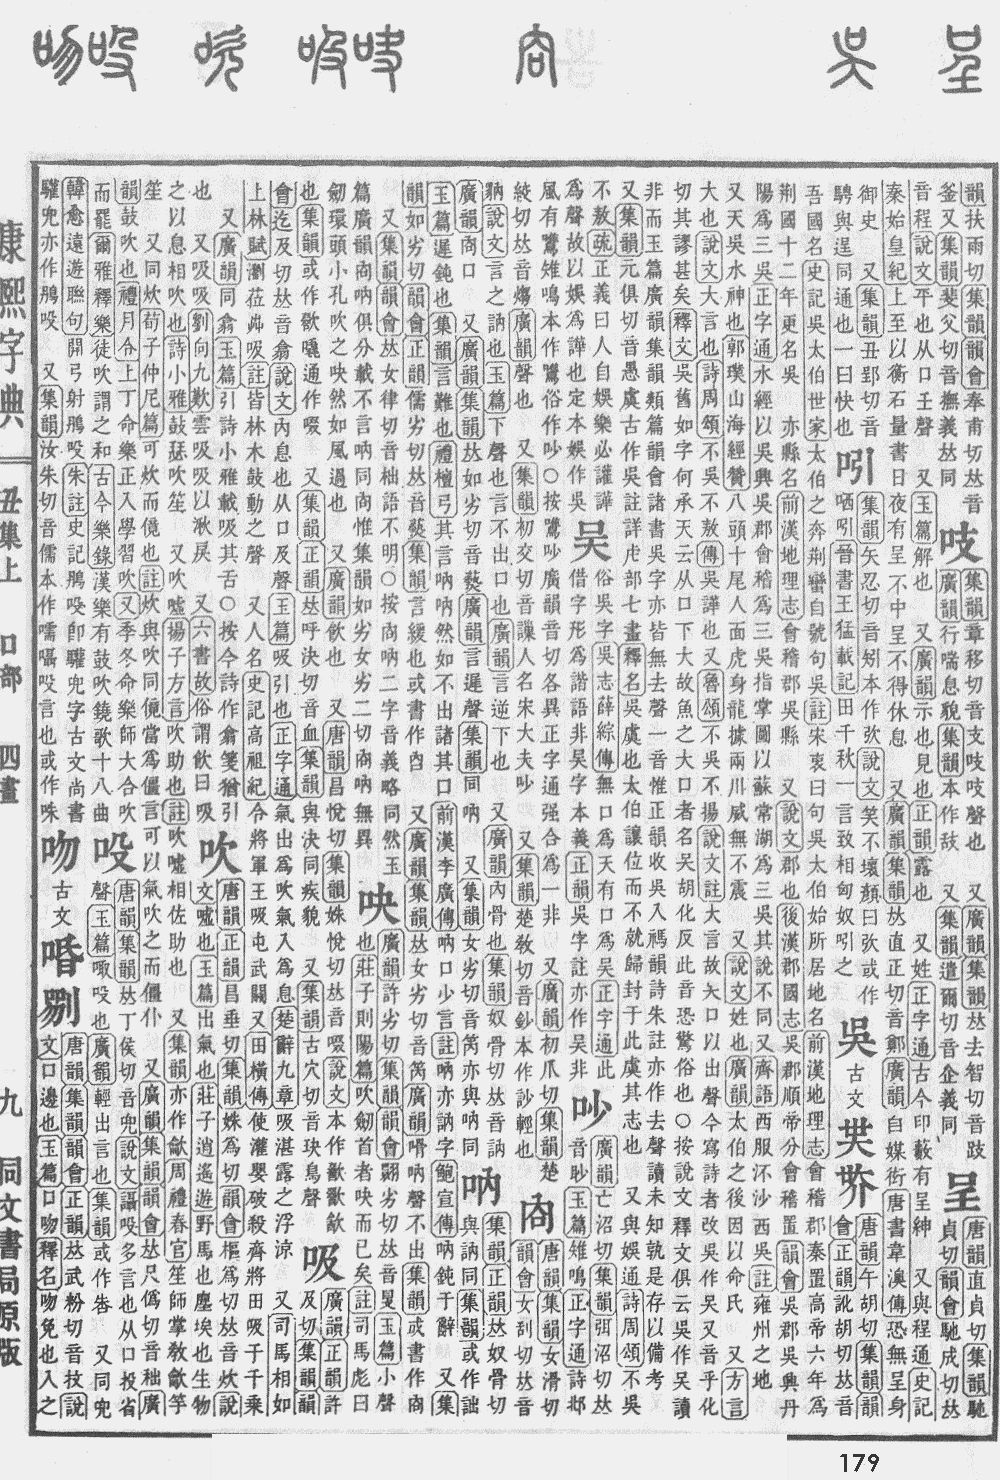 韻扶雨切集韻韻會奉甫切𠀤音
釜又集韻蒙父切音撫義𠀤同
吱
集韻章移切音支吱吱聲也 又廣韻集韻𠀤去智切音跂
廣韻行喘息貌集韻本作𢻃 又集韻遣爾切音企義同
呈
唐韻直貞切集韻馳
貞切韻會馳成切𠀤
音程說文平也从口壬聲 又玉篇解也 又廣韻示也見也正韻露也 又姓正字通古今印藪有呈紳 又與程通史記
秦始皇紀上至以衡石量書日夜有呈不中呈不得休息 又廣韻集韻𠀤直正切音鄭廣韻自媒衒唐書韋澳傳恐無呈身
御史 又集韻丑郢切音
騁與逞同通也一曰快也
吲
集韻矢忍切音矧本作㰞說文笑不壞顏曰㰞或作
哂吲晉書王猛載記田千秋一言致相匈奴吲之
吳
古文
唐韻午胡切集韻韻
會正韻訛胡切𠀤音
吾國名史記吳太伯世家太伯之奔荆蠻自號句吳註宋衷曰句吳太伯始所居地名前漢地理志會稽郡秦置高帝六年爲
荆國十二年更名吳 亦縣名前漢地理志會稽郡吳縣 又說文郡也後漢郡國志吳郡順帝分會稽置韻會吳郡吳興丹
陽爲三吳正字通水經以吳興吳郡會稽爲三吳指掌圖以蘇常湖爲三吳其說不同又齊語西服沙西吳註雍州之地
又天吳水神也郭璞山海經贊八頭十尾人面虎身龍據兩川威無不震 又說文姓也廣韻太伯之後因以命氏 又方言
大也說文大言也詩周頌不吳不敖傳吳譁也又魯頌不吳不揚說文註大言故矢口以出聲今寫詩者改吳作㕦音乎化
切其謬甚矣釋文吳舊如字何承天云从口下大故魚之大口者名吳胡化反此音恐驚俗也○按說文釋文俱云吳作㕦讀
非而玉篇廣韻集韻類篇韻會諸書吳字亦皆無去聲一音惟正韻收吳入禡韻詩朱註亦作去聲讀未知孰是存以備考
又集韻元俱切音愚虞古作吳註詳虍部七畫釋名吳虞也太伯讓位而不就歸封于此虞其志也 又與娛通詩周頌不吳
不敖疏正義曰人自娛樂必讙譁
爲聲故以娛爲譁也定本娛作吳
吴
俗吳字吳志薛綜傳無口爲天有口爲吴正字通此
借字形爲諧語非吳字本義正韻吴字註亦作吴非
吵
廣韻亡沼切集韻弭沼切𠀤
音眇玉篇雉鳴正字通詩邶
風有鷕雉鳴本作鷕俗作吵○按鷕吵廣韻音切各異正字通强合爲一非 又廣韻初爪切集韻楚
絞切𠀤音煼廣韻聲也 又集韻初交切音譟人名宋大夫吵 又集韻楚敎切音鈔本作訬輕也
㕯
唐韻集韻女滑切
韻會女刮切𠀤音
豽說文言之訥也玉篇下聲也言不出口也廣韻言逆下也 又廣韻內骨也集韻奴骨切𠀤音訥
廣韻㕯口 又廣韻集韻𠀤如劣切音爇廣韻言遲聲集韻同吶 又集韻女劣切音筃亦與吶同
吶
集韻正韻𠀤奴骨切
與訥同集韻或作詘
玉篇遲鈍也集韻言難也禮檀弓其言吶吶然如不出諸其口前漢李廣傳吶口少言註吶亦訥字鮑宣傳吶鈍于辭 又集
韻如劣切韻會正韻儒劣切𠀤音爇集韻言緩也或書作㕯 又廣韻集韻𠀤女劣切音筃廣韻嗗吶聲不出集韻或書作㕯
又集韻韻會𠀤女律切音柮語不明○按㕯吶二字音義略同然玉
篇廣韻㕯吶俱分載不言吶同㕯惟集韻如劣女劣二切㕯吶無異
吷
廣韻許劣切集韻韻會翾劣切𠀤音旻玉篇小聲
也莊子則陽篇吹劒首者吷而已矣註司馬彪曰
劒環頭小孔吹之吷然如風過也 又廣韻飲也 又唐韻昌悅切集韻姝悅切𠀤音啜說文本作歠歠歃
也集韻或作㰱嚽通作啜 又集韻正韻𠀤呼決切音血集韻與決同疾貌 又集韻古穴切音玦鳥聲
吸
廣韻正韻許
及切集韻韻
會迄及切𠀤音翕說文內息也从口及聲玉篇吸引也正字通氣出爲吹氣入爲息楚辭九章吸湛露之浮涼 又司馬相如
上林賦瀏莅芔吸註皆林木鼓動之聲 又人名史記高祖紀令將軍王吸屯武關又田橫傳使灌嬰破殺齊將田吸于千乗
又廣韻同翕玉篇引詩小雅載吸其舌○按今詩作翕箋猶引
也 又吸吸劉向九歎雲吸吸以湫戾 又六書故俗謂飮曰吸
吹
唐韻正韻昌垂切集韻姝爲切韻會樞爲切𠀤音炊說
文噓也玉篇出氣也莊子逍遙遊野馬也塵埃也生物
之以息相吹也詩小雅鼓瑟吹笙 又吹噓揚子方言吹助也註吹噓相佐助也 又集韻亦作龡周禮春官笙師掌敎龡竽
笙 又同炊荀子仲尼篇可炊而傹也註炊與吹同傹當爲僵言可以氣吹之而僵仆 又廣韻集韻韻會𠀤尺僞切音廣
韻鼓吹也禮月令上丁命樂正入學習吹又季冬命樂師大合吹
而罷爾雅釋樂徒吹謂之和古今樂錄漢樂有鼓吹鐃歌十八曲
吺
唐韻集韻𠀤丁侯切音兜說文讘吺多言也从口投省
聲玉篇吺也廣韻輕出言也集韻或作 又同兜
韓愈遠遊聯句開弓射鴅吺朱註史記鴅吺卽驩兜字古文尚書
驩兜亦作鴅吺 又集韻汝朱切音儒本作嚅囁吺言也或作咮
吻
古文
㖧
唐韻集韻韻會正韻𠀤武粉切音抆說
文口邊也玉篇口吻釋名吻免也入之
康熙字典 丑集上 口部 四畫 九 同文書局原版
179